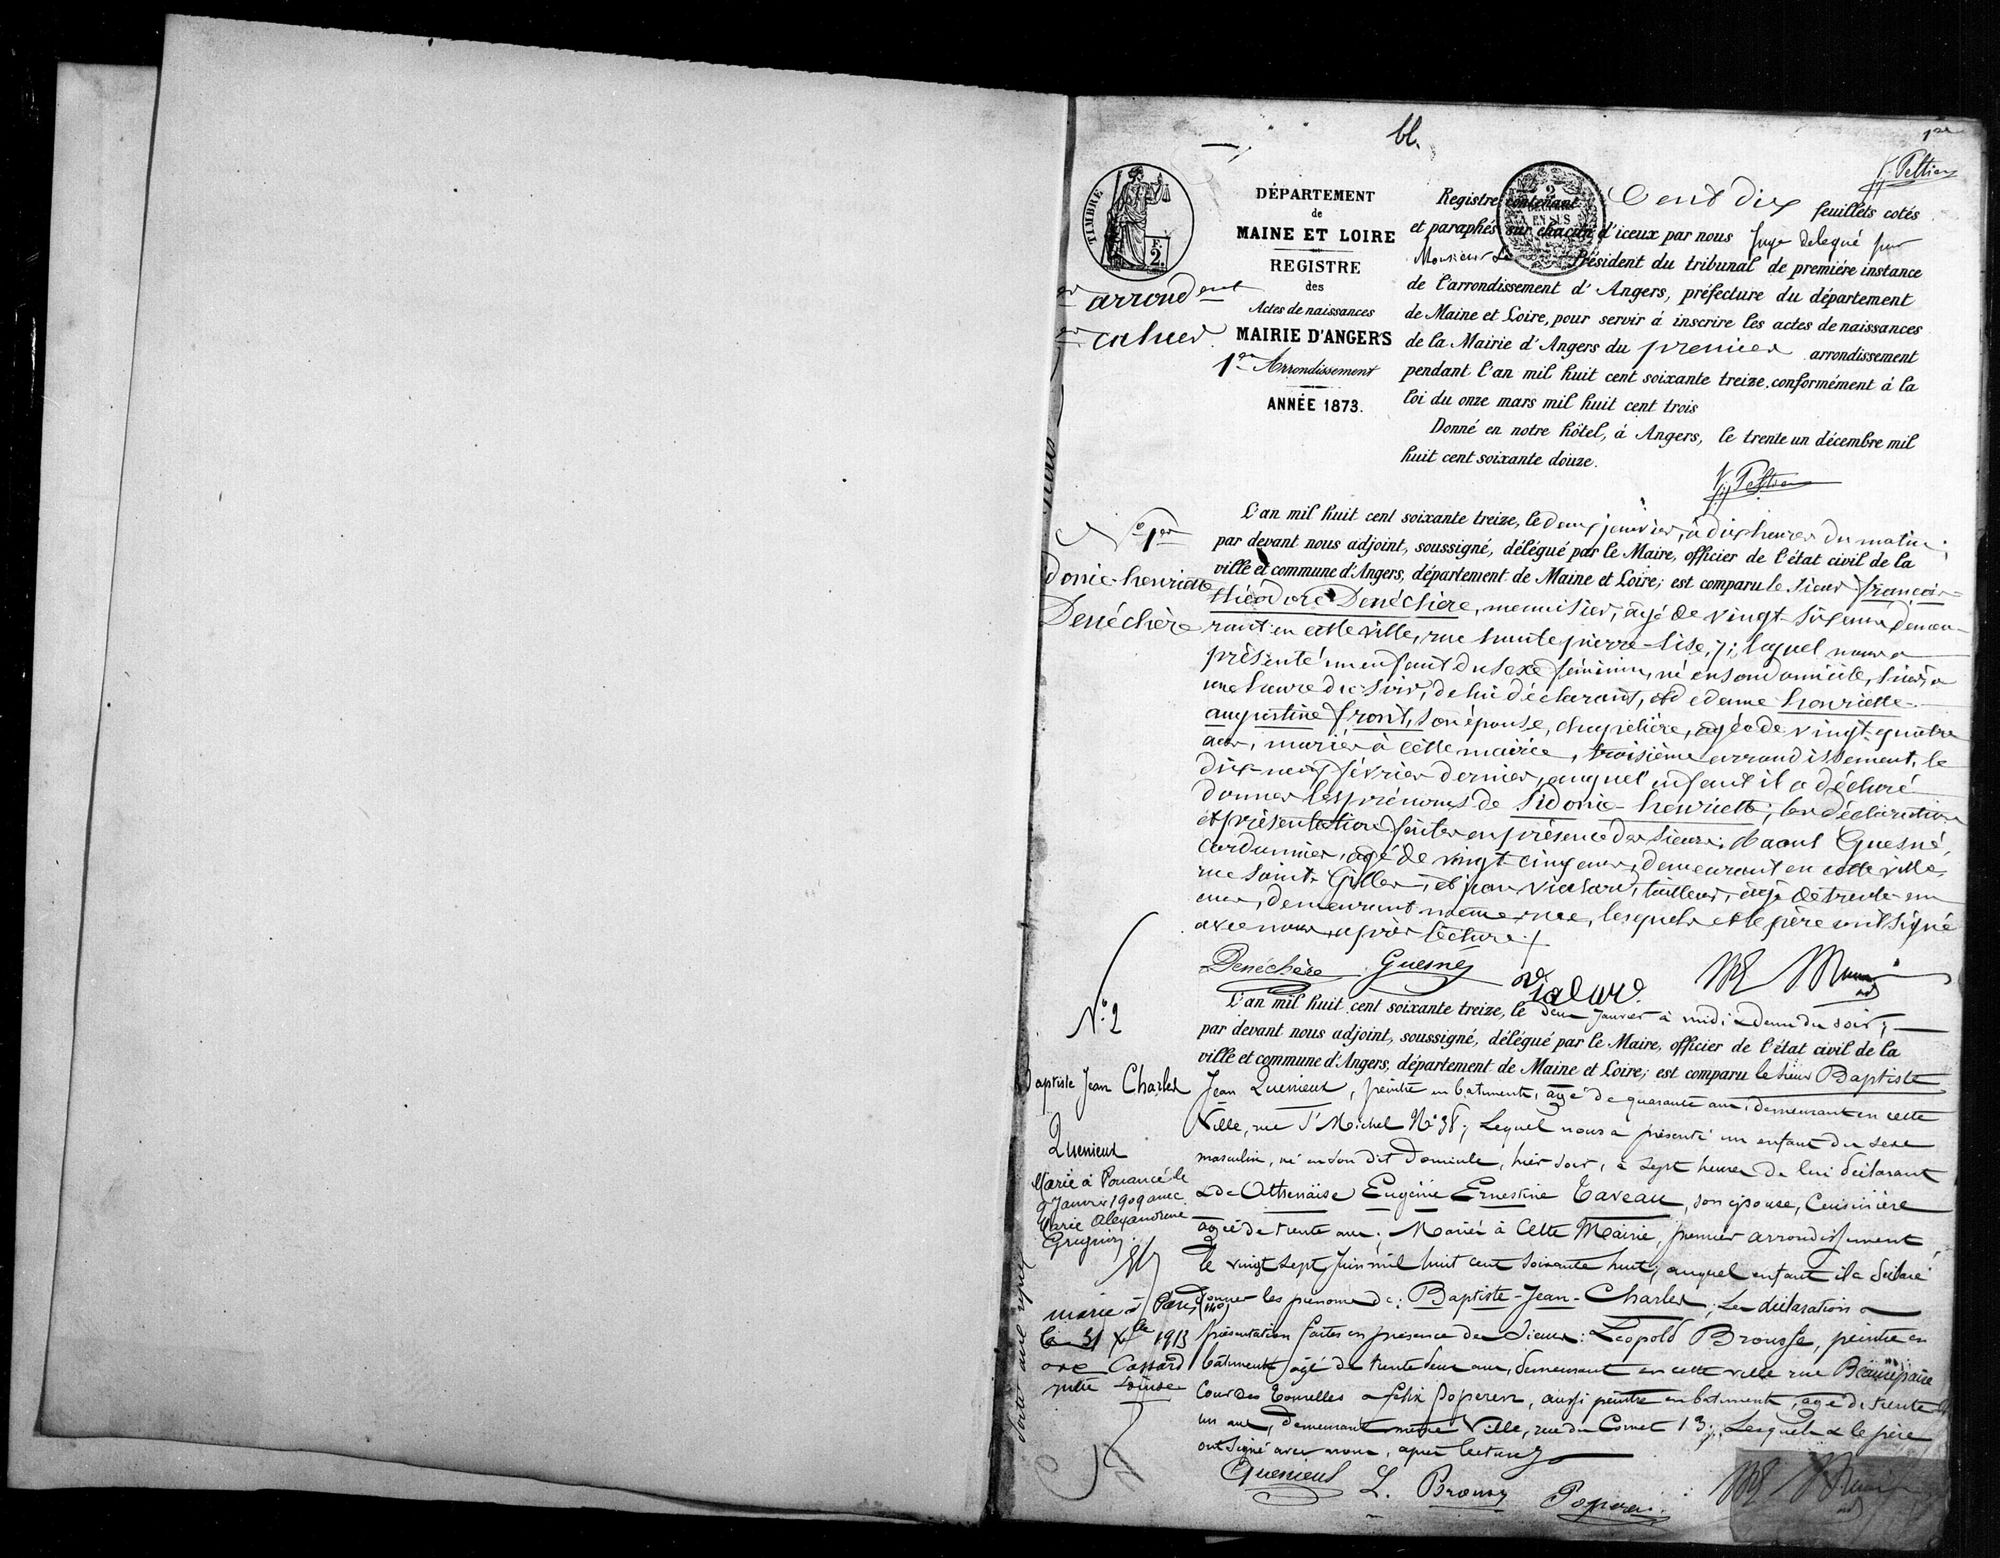 1er
bl.
Peltier
TIMBRE
F. 2.
2
EN SUS
arrondent
cahier.
DÉPARTEMENT
de
MAINE ET LOIRE
REGISTRE
des
Actes de naissances
MAIRIE D'ANGERS
1er Arrondissement
ANNÉE 1873.
Registre contenant Cent dix feuillets cotés
et paraphés sur chacun d'iceux par nous Juge délégué par
Monsieur Le Président du tribunal de première instance
de l'arrondissement d'Angers, préfecture du département
de Maine et Loire, pour servir à inscrire les actes de naissances
de la Mairie d'Angers du premier arrondissement
pendant l'an mil huit cent soixante treize, conformément à la
loi du onze mars mil huit cent trois
Donné en notre hôtel, à Angers, le trente un décembre mil
huit cent soixante douze.
Peltier
No 1er
donie-henriette
Denéchère
L'an mil huit cent soixante treize, le deux janvier, à dix heures du matin;
par devant nous adjoint, soussigné, délégué par le Maire, officier de l'état civil de la
ville et commune d'Angers, département de Maine et Loire; est comparu le sieur françois-
théodore Denéchère, menuisier, agé de vingt-six ans, demeu-
rant en cette ville, rue haute pierre-lise, 7; lequel nous a
présenté un enfant du sexe féminin, né en son domicile, hier, a
une heure du soir, de lui déclarant, et de dame henriette-
augustine front, son épouse, chapelière, agée de vingt-quatre
ans, mariés à cette mairie, troisième arrondissement, le
dix-neuf février dernier, auquel enfant il a déclaré
donner les prénoms de Sidonie-henriette; les déclaration
et présentation faites en présence des sieurs: Raoul Guesné,
cordonnier, agé de vingt-cinq ans, demeurant en cette ville,
rue Saint-Gilles, et jean Vialard, tailleur, agé de trente-un
ans, demeurant même rue, lesquels et le père ont signé
avec nous, après lecture./.
Denéchère Guesné Vialard.
No 2
aptiste Jean Charles
Quenieux
Marié à Pouancé le
Janvier 1909 avec
Marie Alexandrine
Grugnon
marié à Paris (14e)
le 31 Xbre 1913
avec Cassard
Louise
L'an mil huit cent soixante treize, le deux Janvier à midi & demi du soir;
par devant nous adjoint, soussigné, délégué par le Maire, officier de l'état civil de la
ville et commune d'Angers, département de Maine et Loire; est comparu le sieur Baptiste
Jean Quenieux, peintre en batiments, agé de quarante ans, demeurant en cette
Ville, rue St Michel No 38; Lequel nous a présenté un enfant du sexe
masculin, né en son dit Domicile, hier soir, à sept heures de lui déclarant
& de Athenaïse Eugénie Ernestine Taveau, son épouse, Cuisinière
agée de trente ans; Mariés à Cette Mairie, premier arrondissement,
le vingt sept Juin mil huit cent soixante huit; auquel enfant il a déclaré
donner les prénoms de: Baptiste-Jean-Charles; Les déclaration &
présentation faites en présence des Sieurs: Léopold Brousse, peintre en
bâtiments agé de trente deux ans, demeurant en cette ville rue Beaurepaire
Cour des Tourelles & félix Poperen, aussi peintre en batiments, agé de trente
un ans, demeurant même Ville, rue du Cornet 13; Lesquels & le père
ont signé avec nous, après lecture
Quenieux L. Brousse Poperen